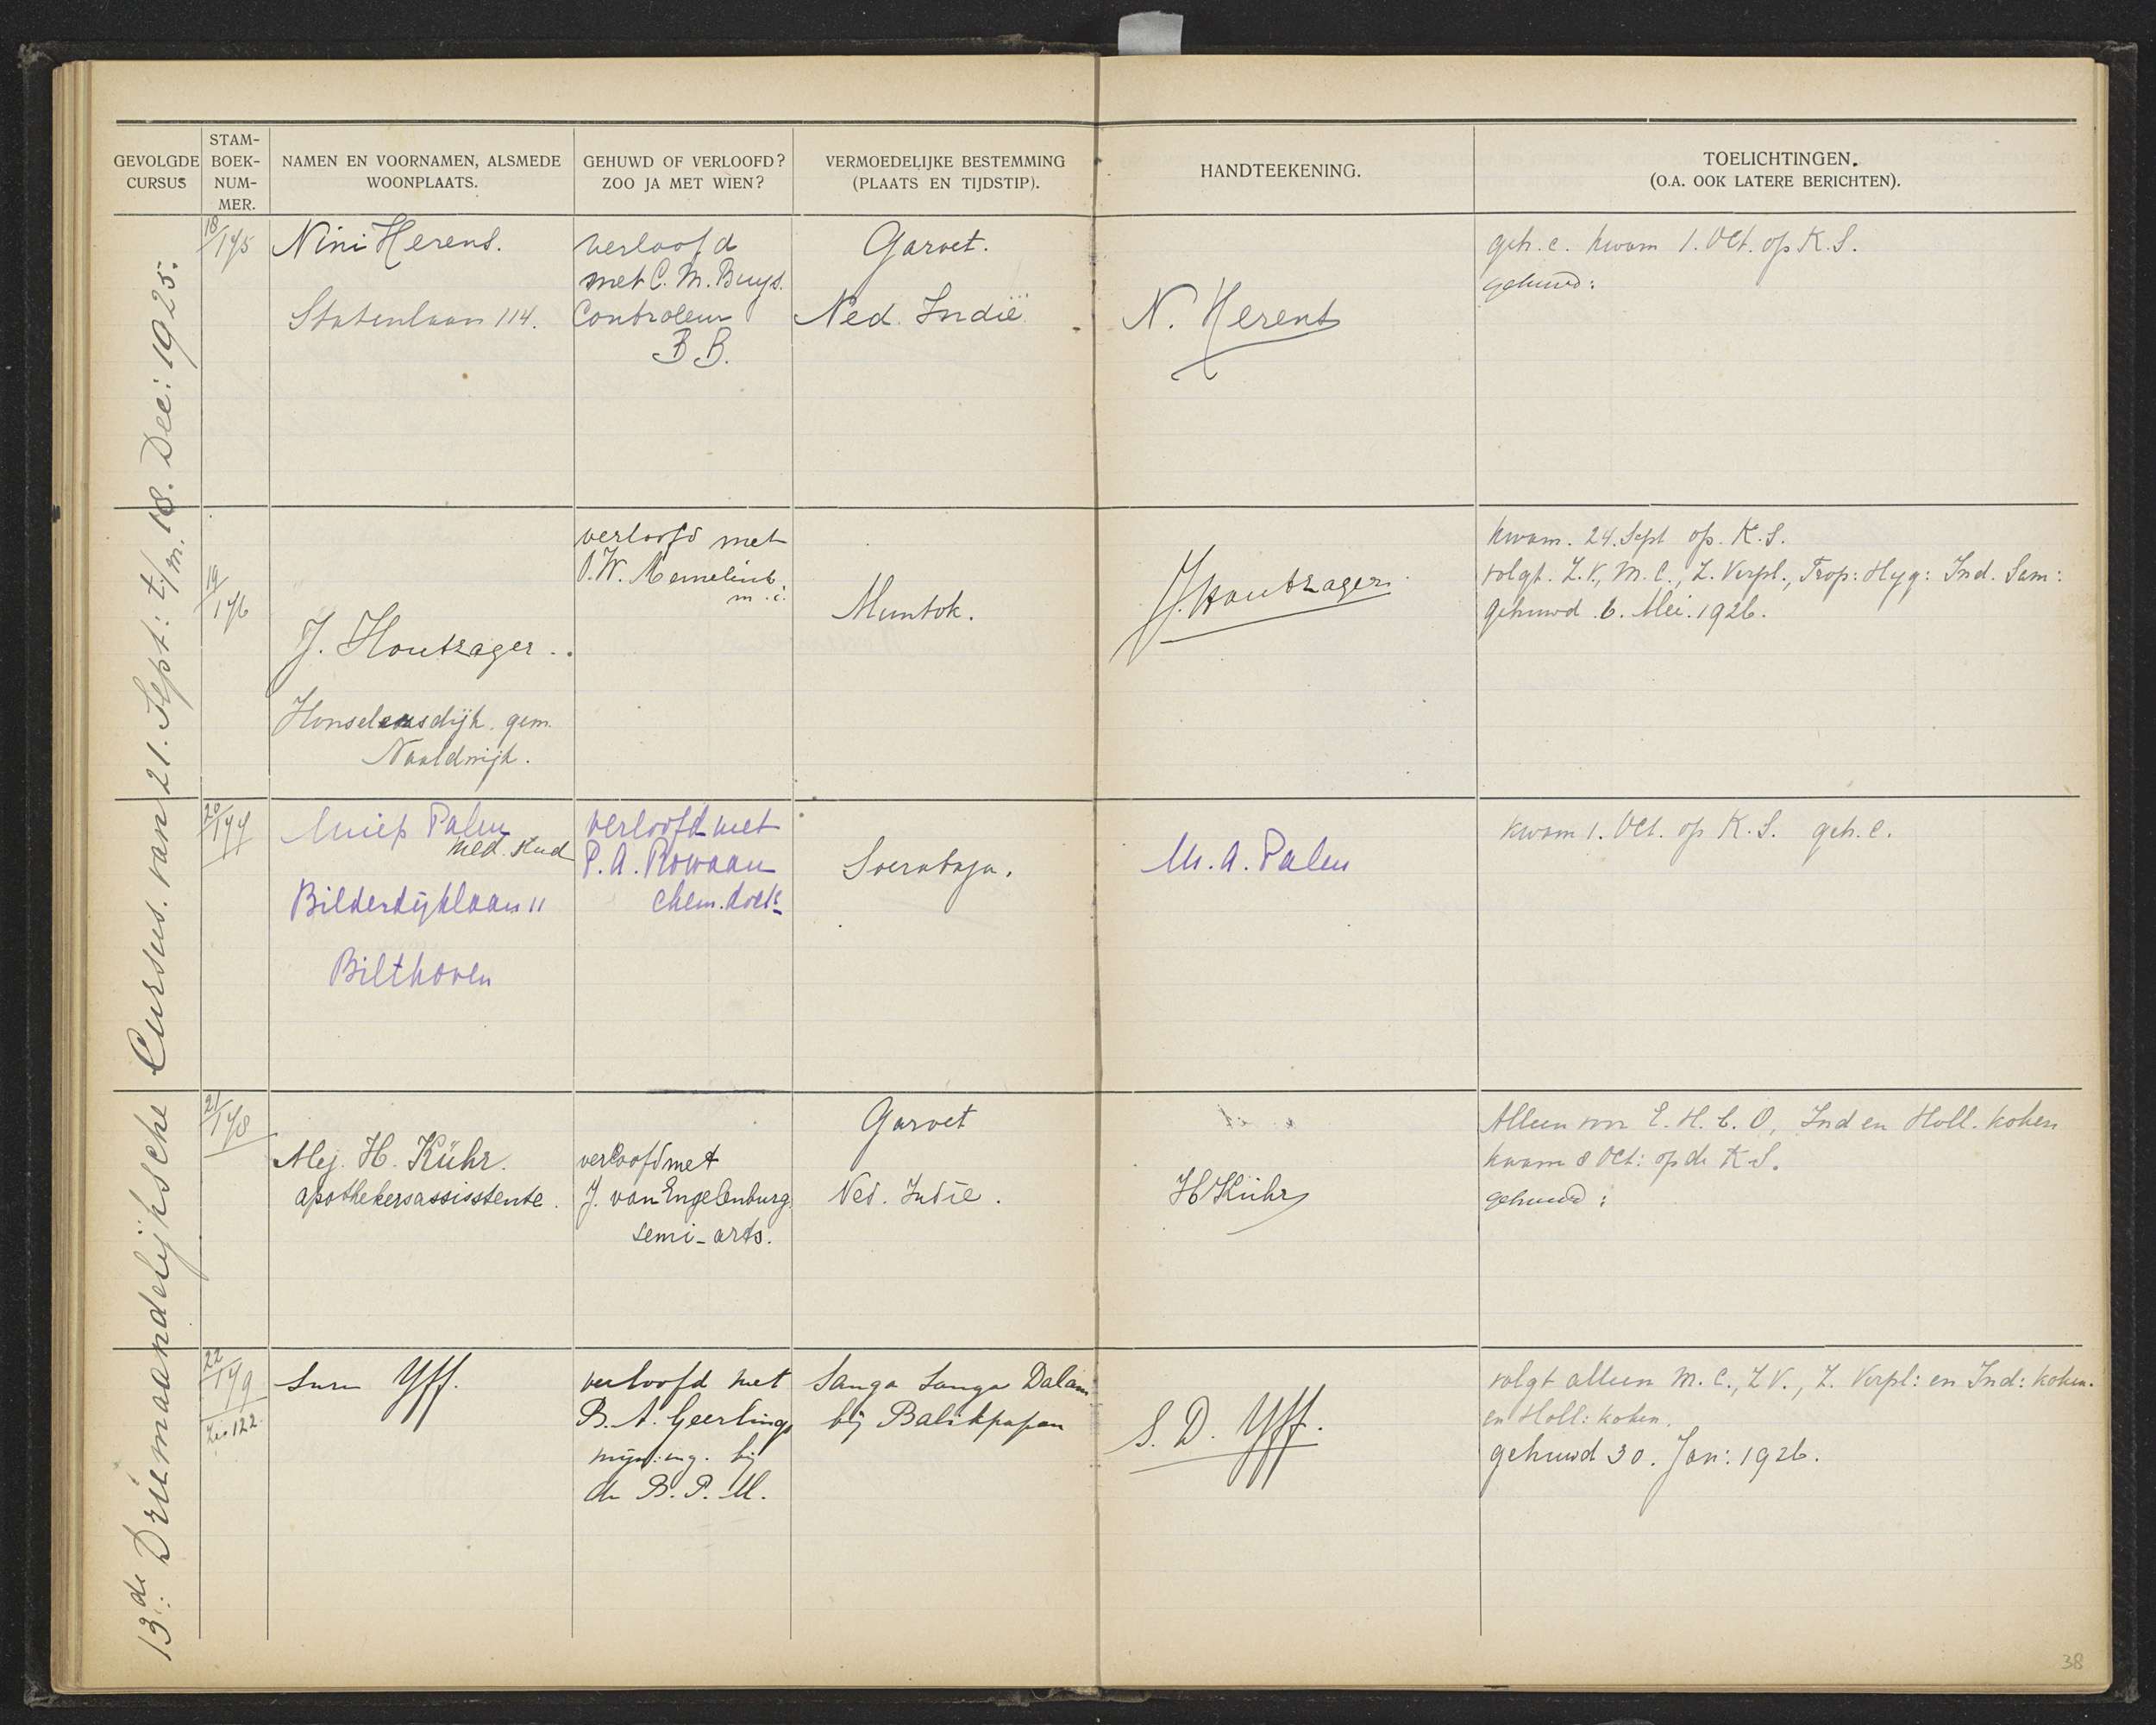 GEVOLGDE CURSUS
STAM-BOEK-NUM-MER.
NAMEN EN VOORNAMEN, ALSMEDE WOONPLAATS.
GEHUWD OF VERLOOFD? ZOO JA MET WIEN?
VERMOEDELIJKE BESTEMMING (PLAATS EN TIJDSTIP).
HANDTEEKENING.
TOELICHTINGEN. (O.A. OOK LATERE BERICHTEN).
13de Driemaandelijksche Cursus. van 21. Sept: t/m. 18. Dec: 1925.
18/175
Nini Herens.
Statenlaan 114.
verloofd
met C. M. Buys.
Controleur
B B.
Garoet.
Ned. Indië
N. Herens
geh. c. kwam 1. Oct. op K. S.
gehuwd:
19/176
J. Houtzager.
Honselersdijk. gem.
Naaldwijk.
verloofd met
m. i.
Muntok.
J. Houtzager
kwam. 24. Sept op. K. S.
volgt. Z. V., M. C., Z. Verpl., Trop: Hyg: Ind. Sam:
gehuwd 6. Mei. 1926.
20/177
Miep Palm
med. kand
Bilderdijklaan 11
Bilthoven
verloofd met
P. A. Rowaan
chem. docts
Soerabaja.
M. A. Palm
kwam 1. Oct. op K. S. geh. c.
21/178
Mej. H. Kühr.
apothekersassisstente.
verloofd met
J. van Engelenburg.
semi-arts.
Garoet
Ned. Indië.
H Kühr
Alleen voor E. H. b. O, Ind en Holl. koken
kwam 8 Oct: op de K. S.
gehuwd:
22/179
Zie 122
Yff.
verloofd met
B. A. Geerlings
mijn. ing. bij
de B. P. M.
Sanga Sanga Dalam
bij Balikpapan
S. D. Yff.
volgt alleen M. C., Z V., Z. Verpl: en Ind: koken.
en Holl: koken.
gehuwd 30. Jan: 1926.
38